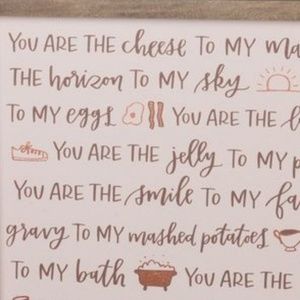 YOU ARE THE cheese TO MY ma
THE horizon TO MY sky
TO MY eggs YOU ARE THE
YOU ARE THE jelly TO MY p
YOU ARE THE smile TO MY fa
gravy TO MY mashed potatoes
TO MY bath YOU ARE THE